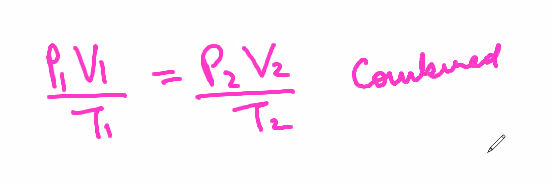 P₁V₁/T₁ = P₂V₂/T₂ Combined